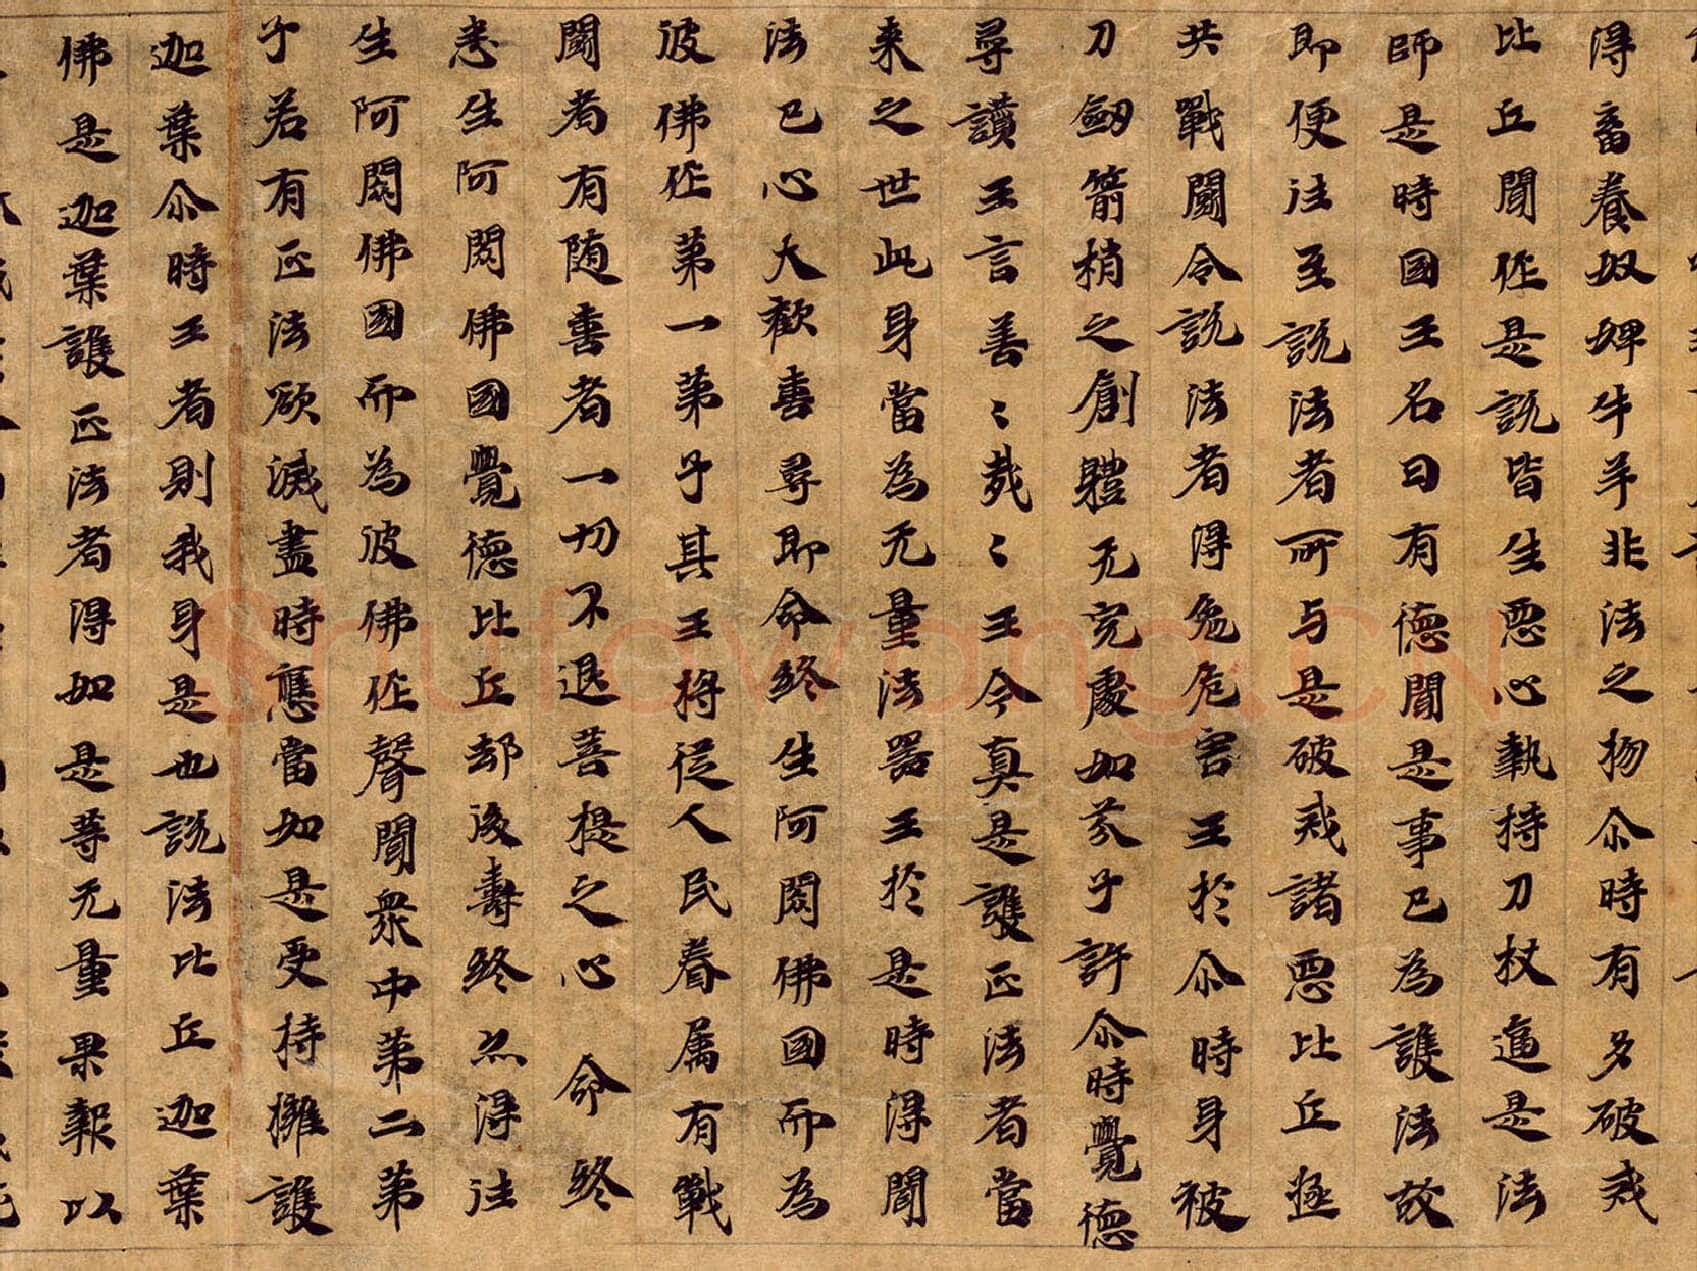 得畜養奴婢牛羊非法之物尒時有多破戒
比丘聞作是說皆生惡心執持刀杖逼是法
師是時國王名曰有德聞是事已為護法故
即便往至說法者所与是破戒諸惡比丘極
共戰鬪令說法者得免危害王於尒時身被
刀劒箭矟之創體无完處如芥子許尒時覺德
尋讚王言善〻哉〻王今真是護正法者當
来之世此身當為无量法器王於是時得聞
法已心大歡喜尋即命終生阿閦佛國而為
彼佛作第一弟子其王將從人民眷属有戰
鬪者有随喜者一切不退菩提之心命終
悉生阿閦佛國覺德比丘却後壽終亦得往
生阿閦佛國而為彼佛作聲聞衆中第二弟
子若有正法欲滅盡時應當如是受持擁護
迦葉尒時王者則我身是也說法比丘迦葉
佛是迦葉護正法者得如是等无量果報以
shufawang.CN